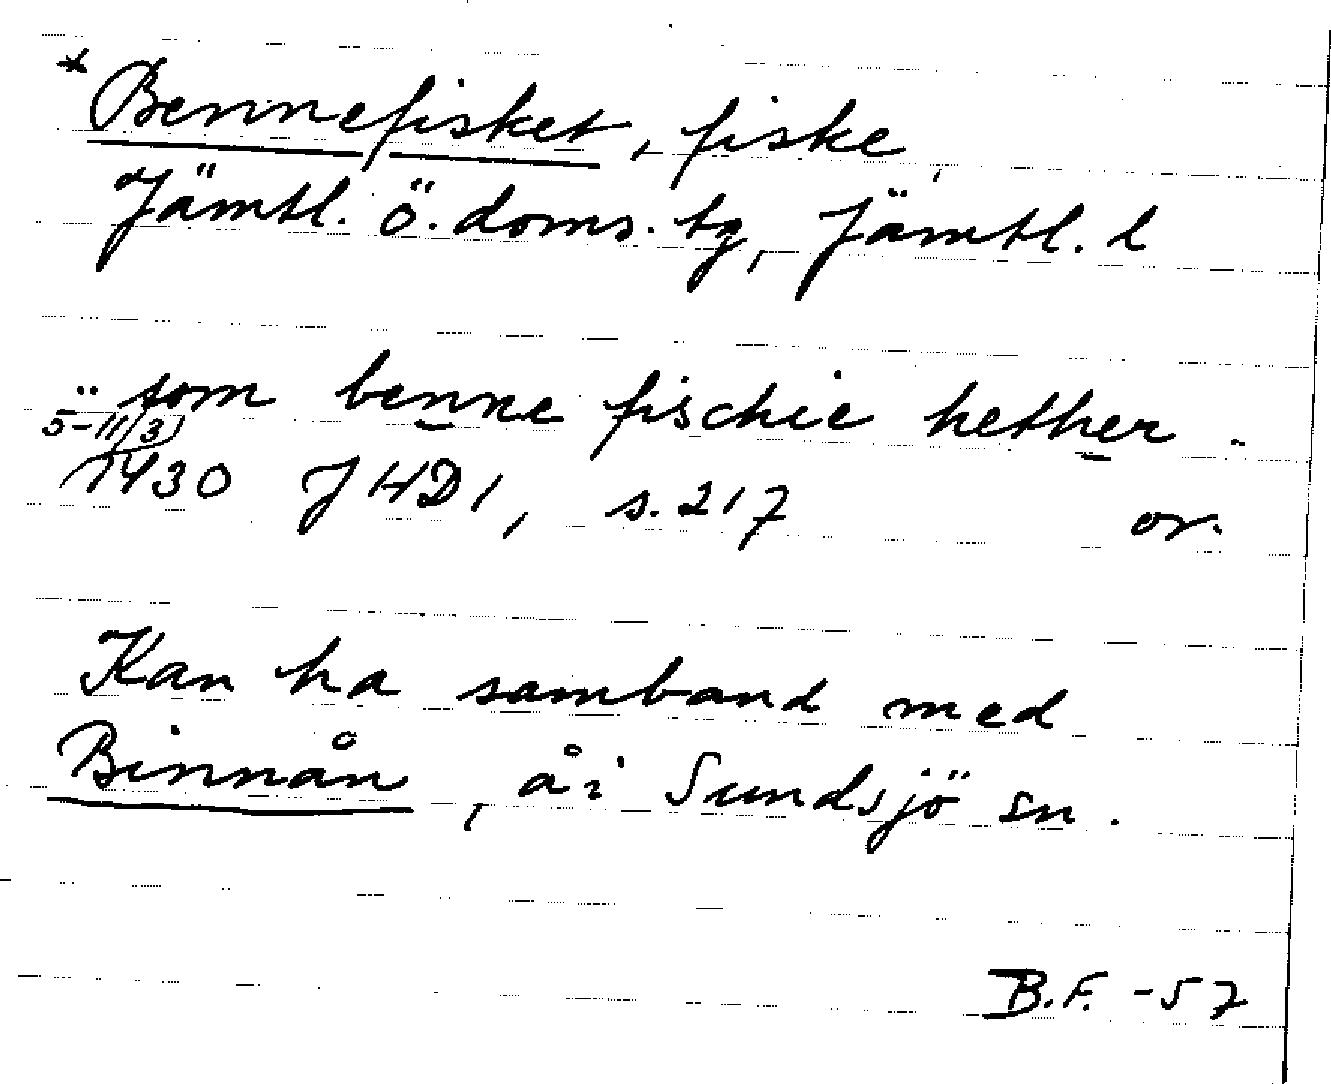 * Bennefisket, fiske
Jämtl. ö. doms. tg, Jämtl. l
.. som benne fischie hether ..
5-11/3 1430 JHD 1, s. 217 or.
Kan ha samband med
Binnån, å i Sundsjö sn.
B.F. -57